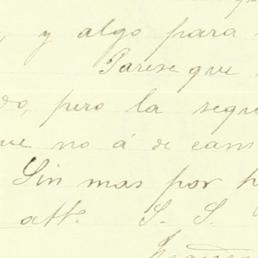 , y algo para
Parese que
do, pero la segu
ue no á de cam
Sin mas por h
att. S. S.
Franc